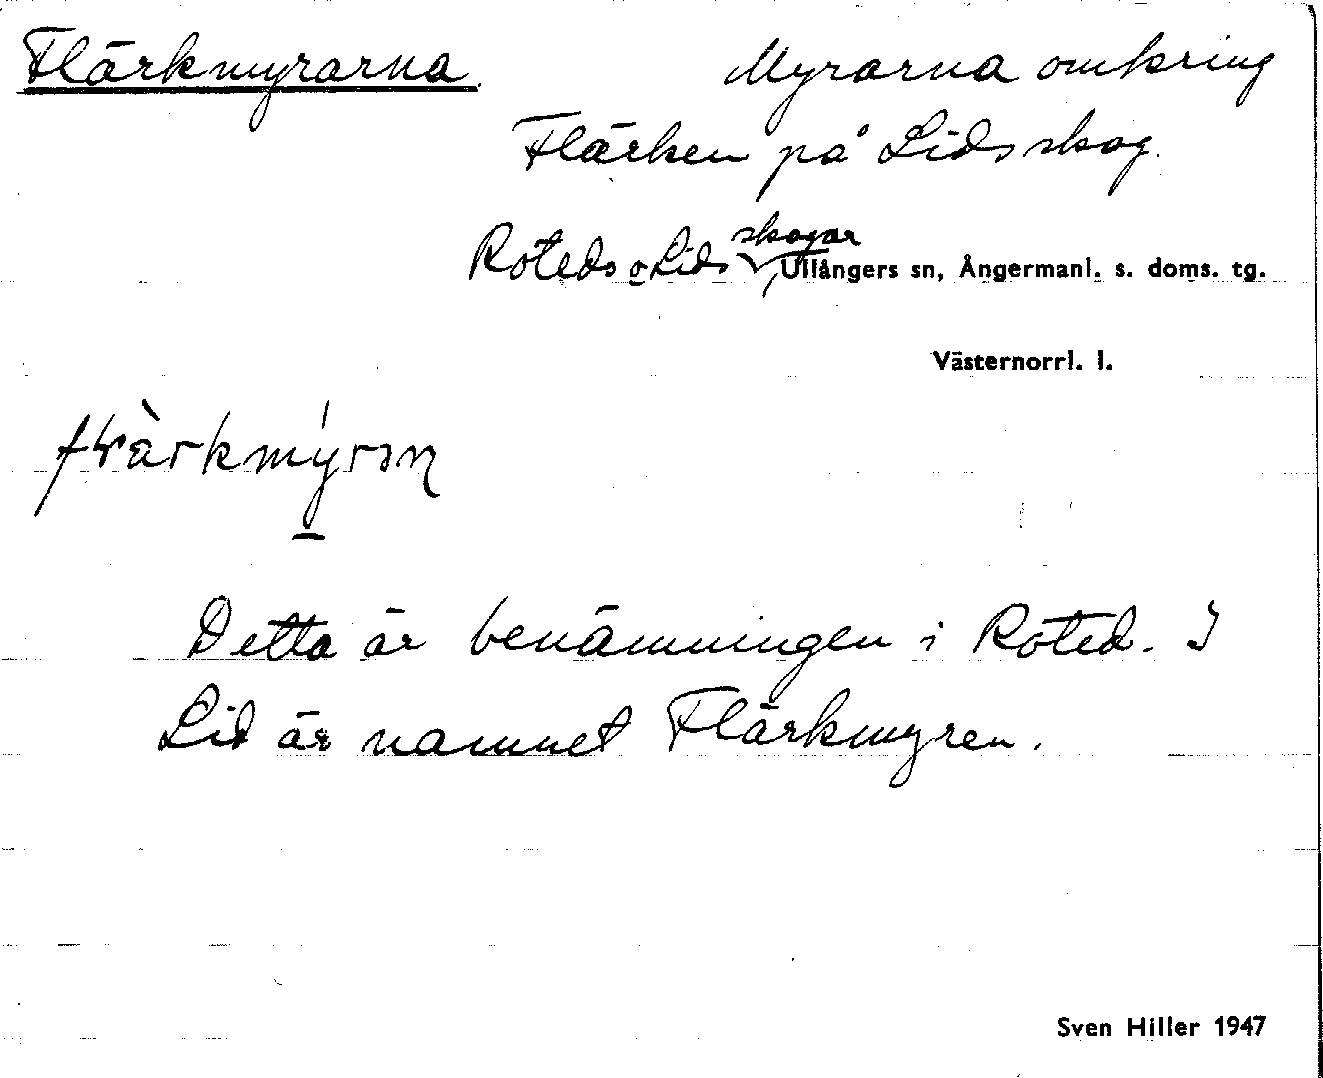 Flärkmyrarna. Myrarna omkring
Flärken på Lids skog.
Roteds o Lids skogar, Ullångers sn, Ångermanl. s. doms. tg.
Västernorrl. l.
Detta är benämningen i Roted. I
Lid är namnet Flärkmyren.
Sven Hiller 1947